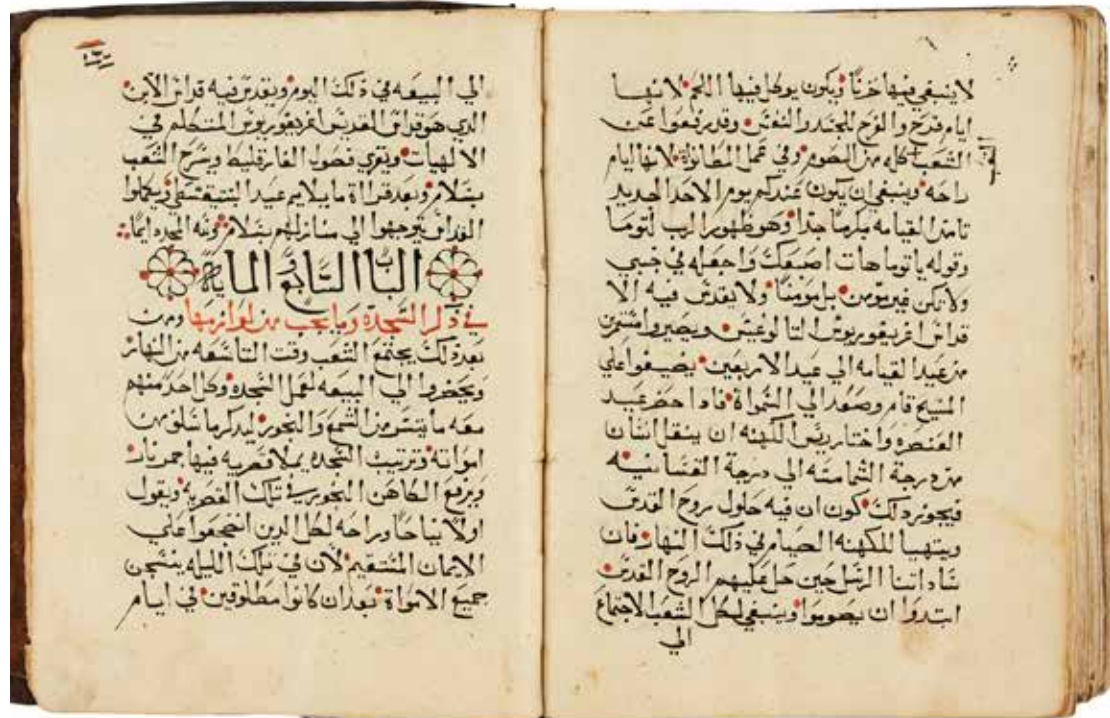 لا ينبغي فيها حزنًا ويكون يوكل فيها اللحم لانها
ايام فرح والفرح للجسد والنفس وقد رفعوا عن
الشعب كله من الصوم وفي عمل المطانواة لانها ايام
راحه وينبغي ان يكون عندكم يوم الاحد الجديد
ثامن القيامه مكرمًا جدا وهو ظهور الرب لتوما
وقوله يا توما هات اصبعك واجعله في جنبي
ولا تكن غير مومن بل مومنًا ولا يقدس فيه الا
قداس اغريغوريوس الثالوغس ويصيروا
من عيد القيامه الي عيد الاربعين علي
المسيح قام وصعد الي السمواة فادا حضر عيد
العنصره واختار رييس الكهنه ان ينقل انسان
من درجة الشماسه الي درجة القسانيه
فيجوز دلك كون ان فيه حلول روح القدس
ويتهيا للكهنه الصيام في ذلك النهار فان
ساداتنا الرسل حين حل عليهم الروح القدس
ابتدوا ان يصوموا وينبغي لكل الشعب الاجتماع
الي
الي البيعه في ذلك اليوم ويقدس فيه قداس الابن
الدي هو قداس القديس اغريغوريوس المتكلم في
الالهيات ويقري فصول الفارقليط ويسرح الشعب
بسلام وبعد قراة ما يلايم عيد البنتيقسطي ويكملوا
القداس يتوجهوا الي منازلهم بسلام ولله المجد دايمًا
الباب السابع والمايه
في ذكر السجده وما يجب من لوازمها ومن
بعد ذلك يجتمع الشعب وقت التاسعه من النهار
ويحضروا الي البيعه لعمل السجده وكل احد منهم
معه ما تيسر من الشمع والبخور ليدكر ما سلف من
امواته وترتيب السجده يملا قصريه فيها جمر نار
ويرفع الكاهن البخور في تلك القصريه ويقول
اولًا نياحًا وراحه لكل الدين اضجعوا علي
الايمان المستقيم لان في تلك الليله ينسجن
جميع الامواة بعد ان كانوا مطلوقين في ايام